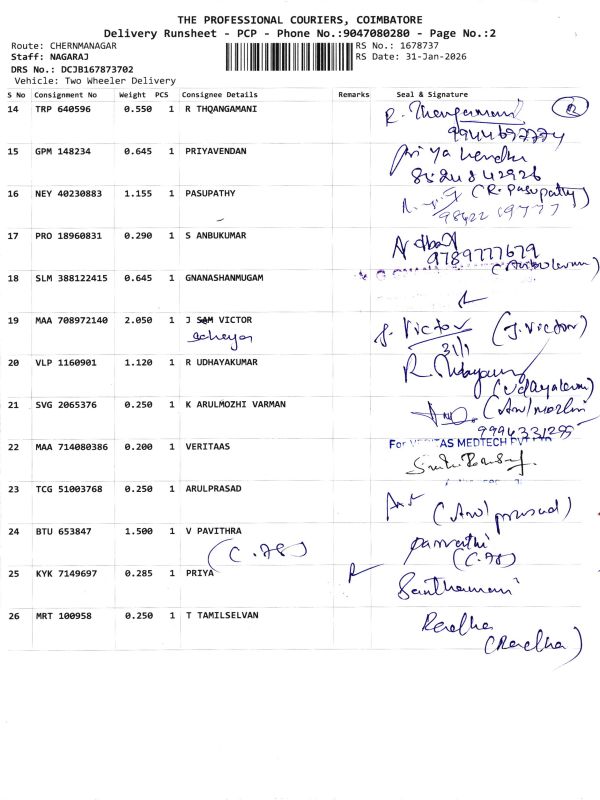 THE PROFESSIONAL COURIERS, COIMBATORE
Delivery Runsheet - PCP - Phone No.:9047080280 - Page No.:2
Route: CHERNMANAGAR RS No.: 1678737
Staff: NAGARAJ RS Date: 31-Jan-2026
DRS No.: DCJB167873702
Vehicle: Two Wheeler Delivery
S No Consignment No Weight PCS Consignee Details Remarks Seal & Signature
14 TRP 640596 0.550 1 R THQANGAMANI R. Thangamani
9944697774
15 GPM 148234 0.645 1 PRIYAVENDAN
8524842926
16 NEY 40230883 1.155 1 PASUPATHY (R. Pasupathy)
98422 19777
17 PRO 18960831 0.290 1 S ANBUKUMAR
9789777679
18 SLM 388122415 0.645 1 GNANASHANMUGAM
19 MAA 708972140 2.050 1 J SAM VICTOR J. Victor (J. Victor)
31/1
20 VLP 1160901 1.120 1 R UDHAYAKUMAR
21 SVG 2065376 0.250 1 K ARULMOZHI VARMAN
22 MAA 714080386 0.200 1 VERITAAS For VERITAS MEDTECH PVT
23 TCG 51003768 0.250 1 ARULPRASAD
(Arul prasad)
24 BTU 653847 1.500 1 V PAVITHRA
(C.78) (C.78)
25 KYK 7149697 0.285 1 PRIYA Santhamani
26 MRT 100958 0.250 1 T TAMILSELVAN Radha
(Radha)